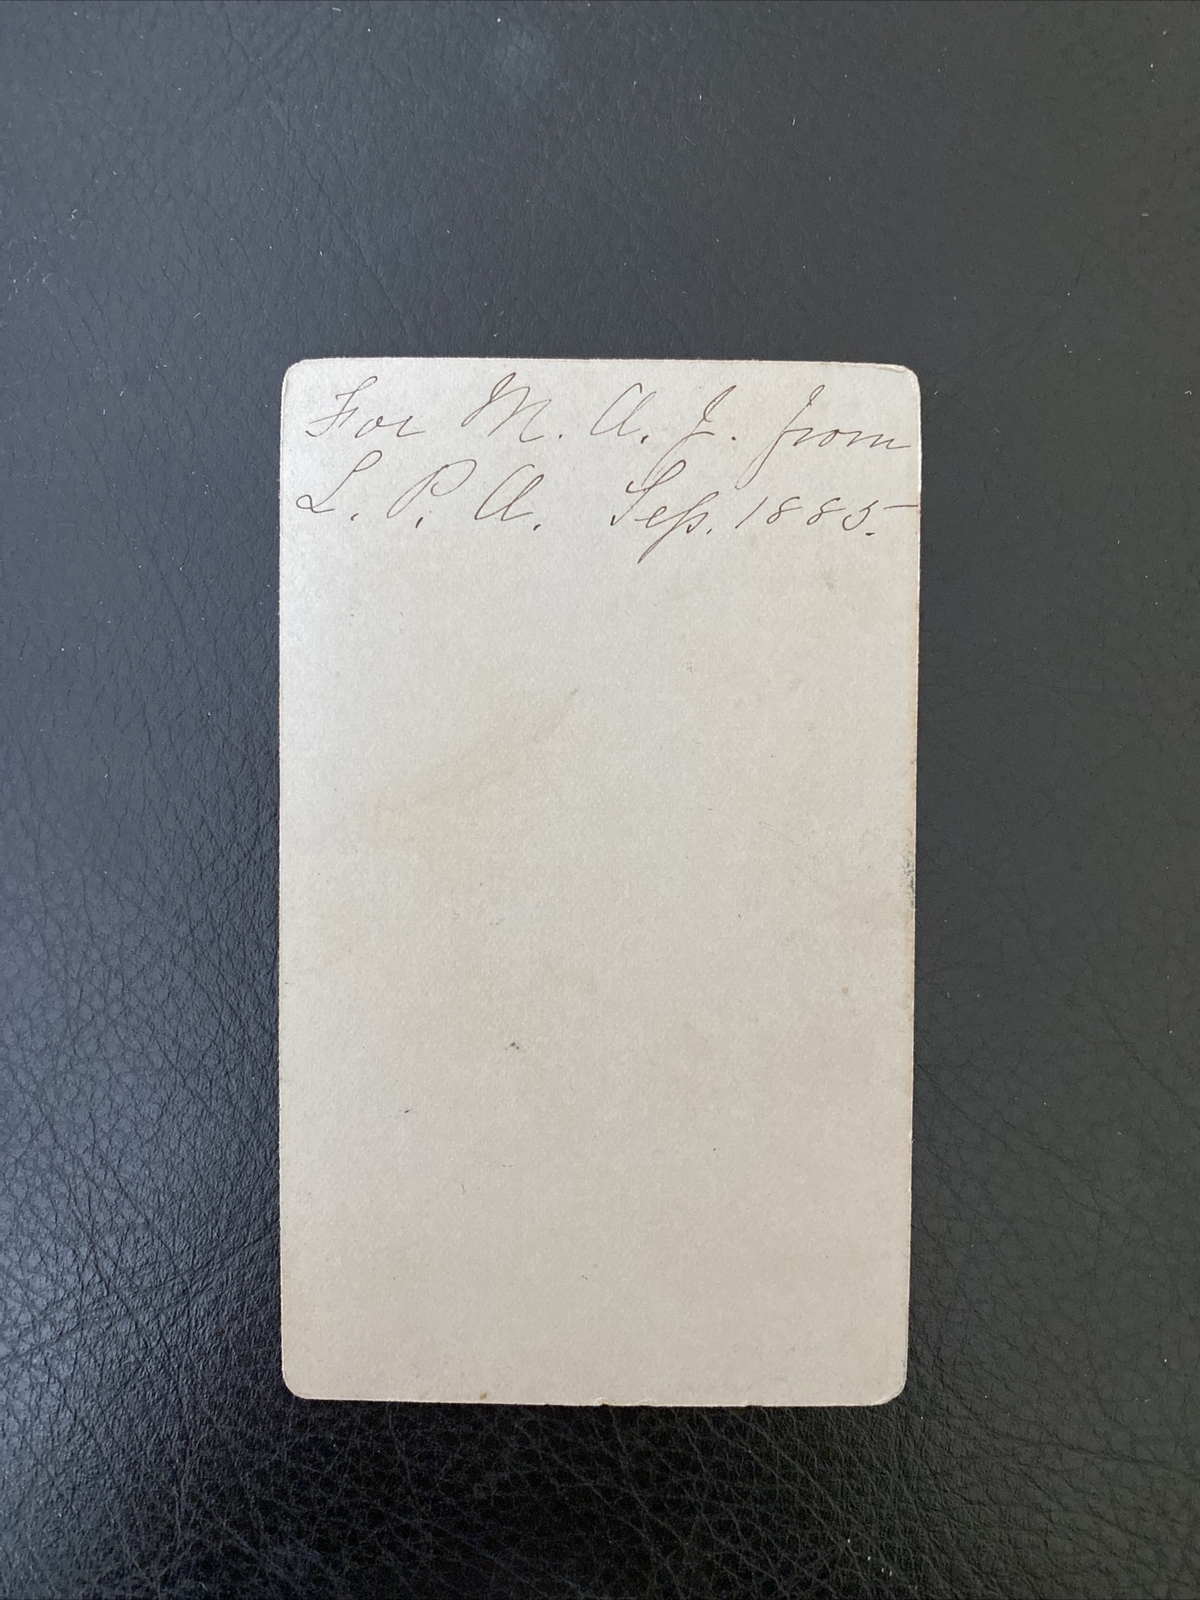 For M. A. J. from
L. P. A. Sep. 1885.